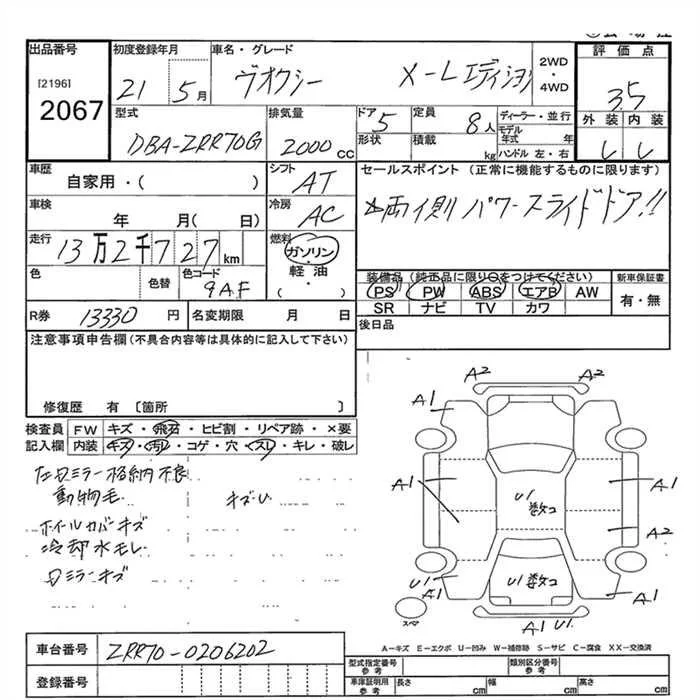 出品番号
[2196]
2067
初度登録年月
21 5月
車名・グレード
ヴオクシー X-Lエディション
2WD
・
4WD
評価点
3.5
外装 内装
型式
DBA-ZRR70G
排気量
2000 cc
ドア 5
形状
定員 8人
積載 kg
ディーラー・並行
モデル年式 年
ハンドル 左・右
車歴
自家用・( )
シフト
AT
セールスポイント (正常に機能するものに限ります)
両側パワースライドドア!!
車検
年 月( 日)
冷房
AC
走行
13万2千727km
燃料
ガソリン・軽油・( )
色
色替
色コード
9AF
装備品 (純正品に限り○をつけてください)
PS PW ABS エアB AW
SR ナビ TV カワ
新車保証書
有・無
R券 13330 円
名変期限 月 日
後日品
注意事項申告欄(不具合内容等は具体的に記入して下さい)
修復歴 有 〔箇所 〕
検査員記入欄
FW キズ・飛石・ヒビ割・リペア跡・×要
内装 キズ・汚レ・コゲ・穴・スレ・キレ・破レ
左ロミラー格納不良
動物毛 キズU
ホイールカバーキズ
冷却水モレ
ロミラーキズ
A2 A2
A1 A1
A1 A1
U1数コ
A2
U1数コ
U1 A1
A1 U1
スペア
A-キズ E-エクボ U-凹み W-補修跡 S-サビ C-腐食 XX-交換済
車台番号 ZRR70-0206202
登録番号
型式指定番号 参考
類別区分番号 参考
車庫証明用 参考
長さ cm 幅 cm 高さ cm